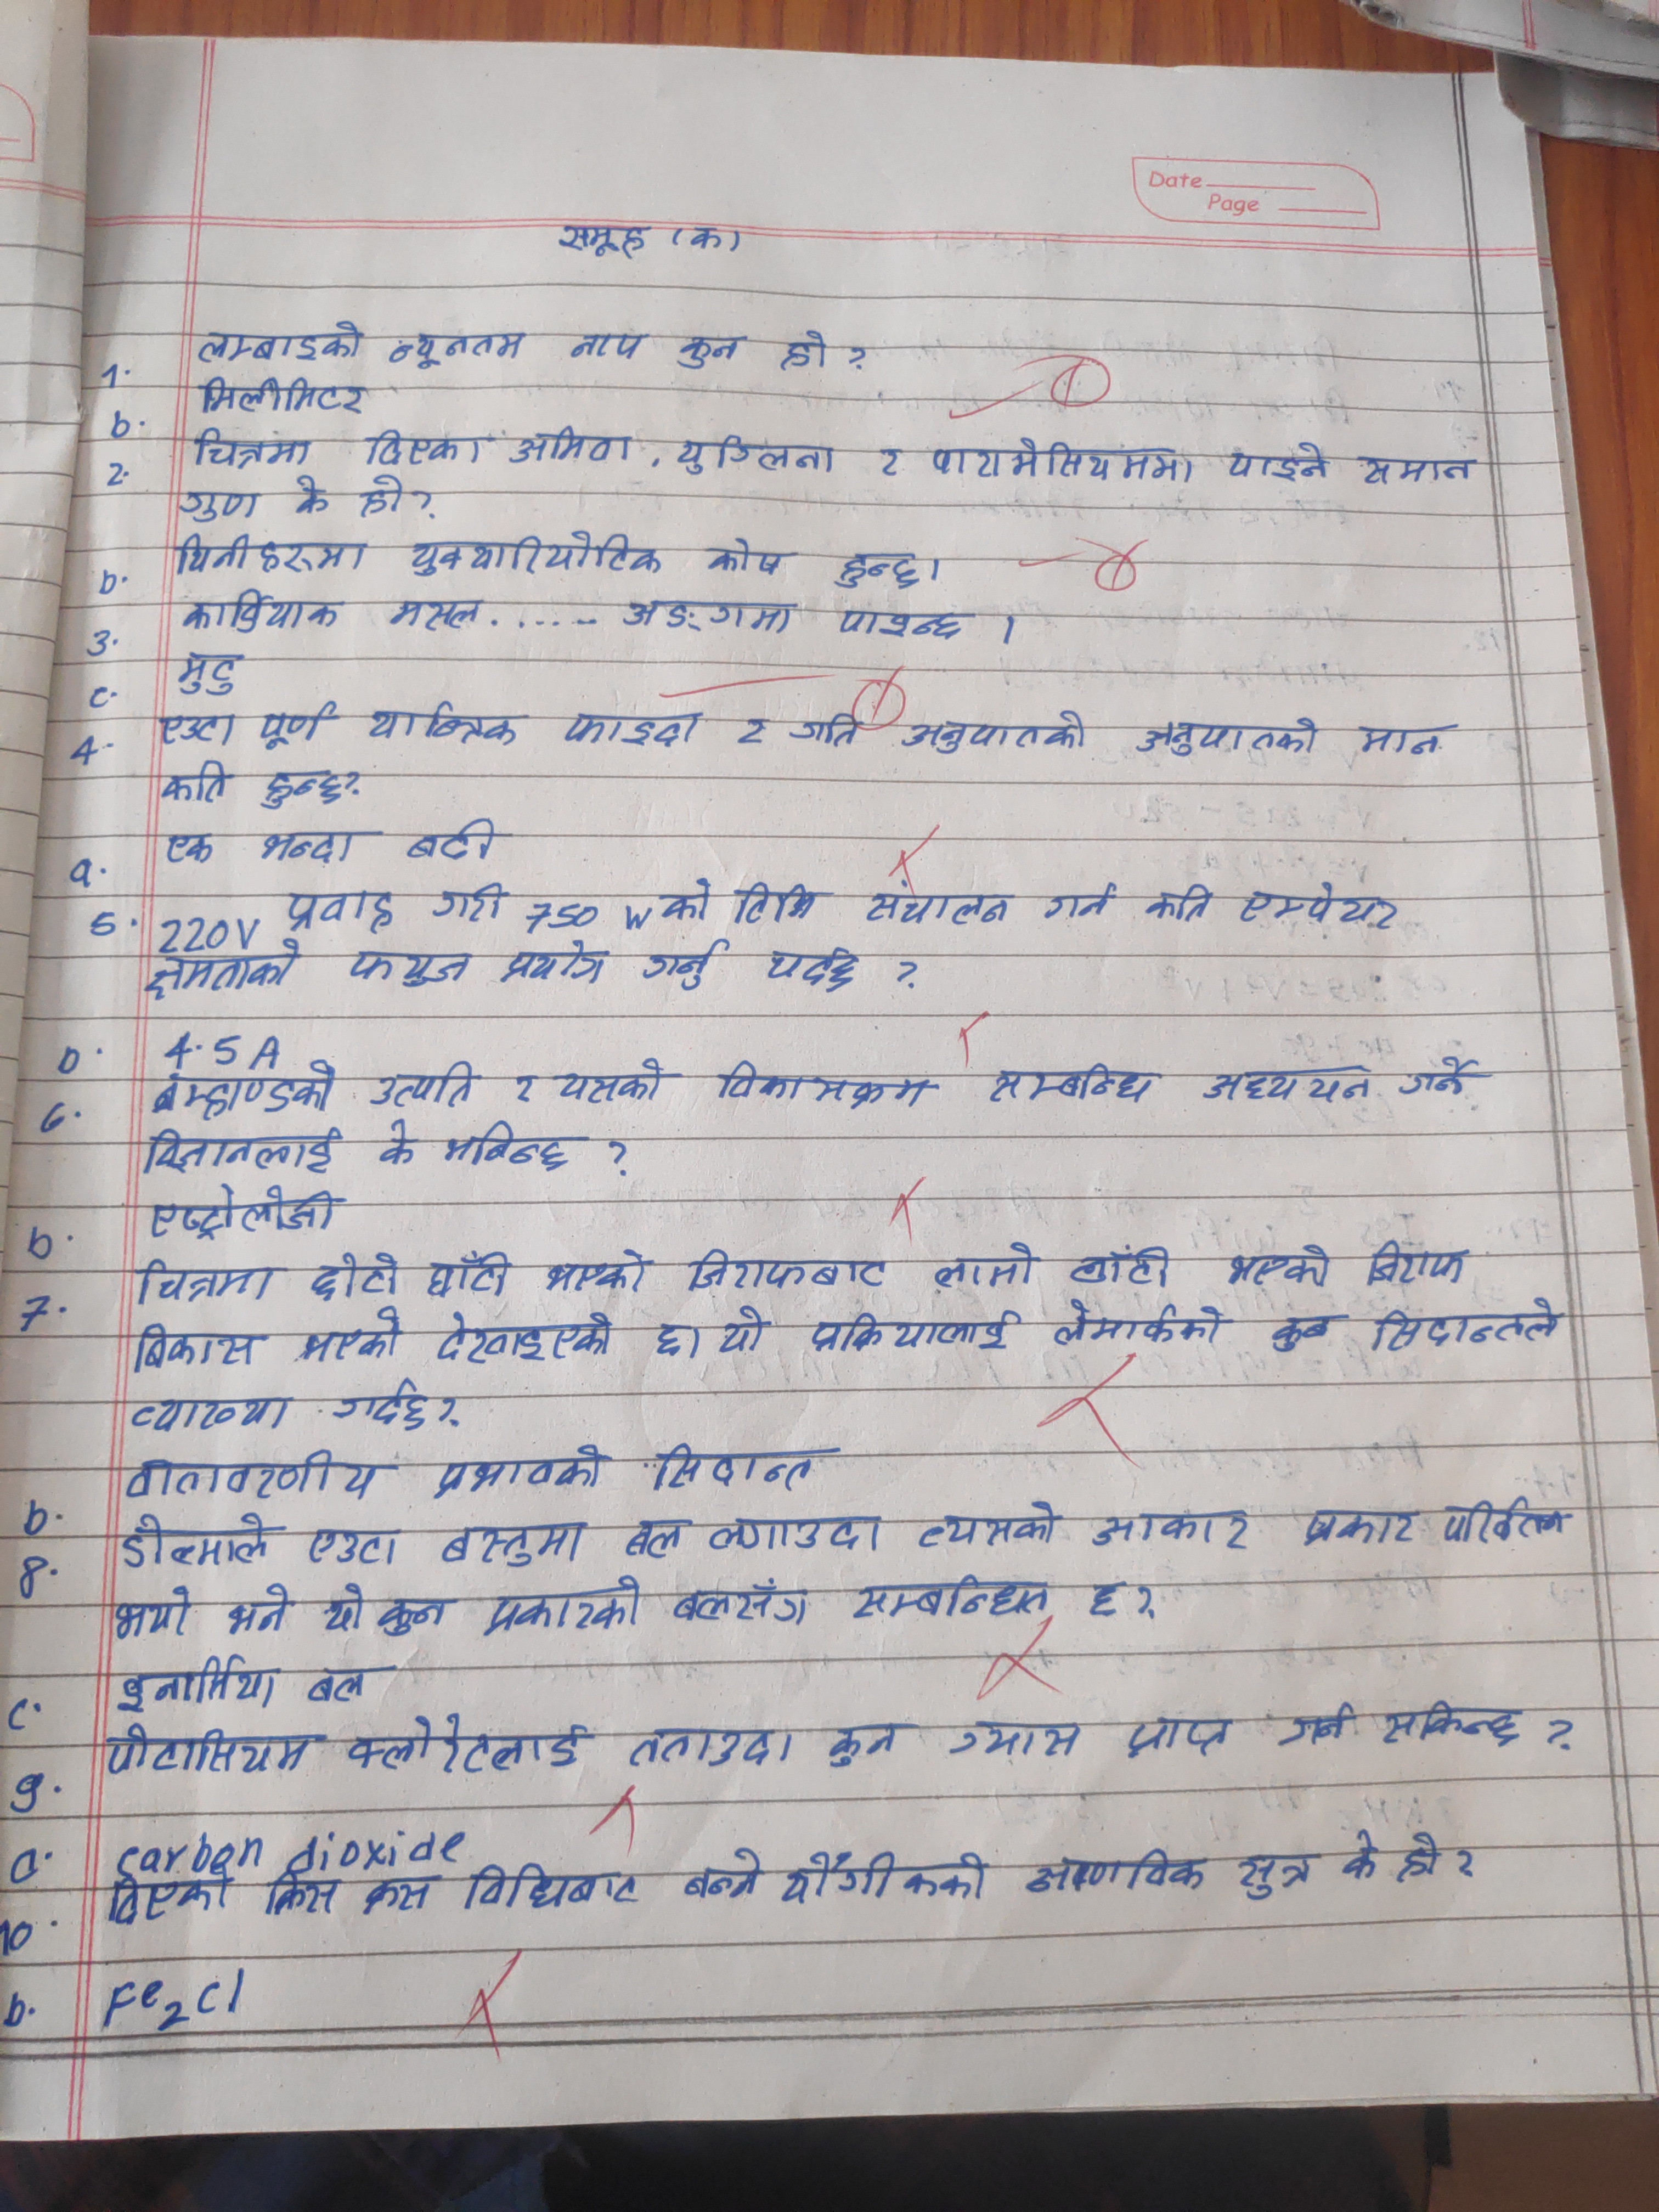 Date
Page
समूह (क)
1. लम्बाइको न्यूनतम नाप कुन हो?
b. मिलीमिटर
2. चित्रमा दिएका अमिवा, युग्लिना र पारामेसियममा पाइने समान
गुण के हो?
b. यिनीहरुमा युक्यारियोटिक कोष हुन्छ।
3. कार्डियाक मसल...... अङ्गमा पाइन्छ।
c. मुटु
4. एउटा पूर्ण यान्त्रिक फाइदा र गति अनुपातको अनुपातको मान
कति हुन्छ?
a. एक भन्दा बढी
5. 220V प्रवाह गरी 750 W को टिभि संचालन गर्न कति एम्पेयर
क्षमताको फयुज प्रयोग गर्नु पर्दछ?
b. 4.5A
6. ब्रम्हाण्डको उत्पति र यसको विकासक्रम सम्बन्धि अध्ययन गर्ने
विज्ञानलाई के भनिन्छ?
b. एष्ट्रोलोजी
7. चित्रमा छोटो घाँटी भएको जिराफबाट लामो घाँटी भएको जिराफ
बिकास भएको देखाइएको छ। यो प्रक्रियालाई लेमार्कको कुन सिदान्तले
व्याख्या गर्दछ?
b. वातावरणीय प्रभावको सिदान्त
8. डोल्माले एउटा बस्तुमा बल लगाउदा त्यसको आकार प्रकार परिर्वतन
भयो भने यो कुन प्रकारको बलसँग सम्बन्धित छ?
c. इनार्सिया बल
9. पोटासियम क्लोरेटलाई तताउदा कुन ग्यास प्राप्त गर्न सकिन्छ?
a. carbon dioxide
10. दिएको क्रिस क्रस विधिबाट बन्ने यौगीकको आणविक सुत्र के हो?
b. Fe₂Cl